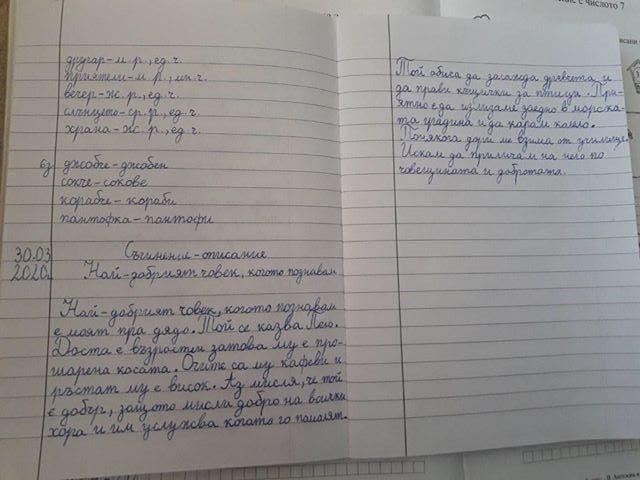 другар-м.р., ед.ч.
приятели-м.р., мн.ч.
вечер-ж.р., ед.ч.
слънцето-ср.р., ед.ч.
храна-ж.р., ед.ч.
6з джобче-джобен
сокче-сокове
корабче-кораби
пантофка-пантофи
30.03 Съчинение-описание
2020г. Най-добрият човек, когото познавам
Най-добрият човек, когото познавам
е моят пра дядо. Той се казва Пею.
Доста е възрастен затова му е про-
шарена косата. Очите са му кафеви и
ръстът му е висок. Аз мисля, че той
е добър, защото мисли добро на всички
хора и им услужва когато го помолят.
Той обича да засажда дръвчета и
да прави къщички за птици. При-
ятно е да излизаме заедно в морска-
та градина и да карам колело.
Понякога дори ме взима от училище.
Искам да приличам на него по
човещината и добротата.
ие с числото 7